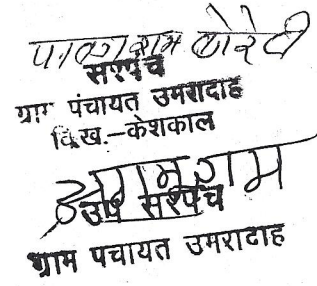 सरपंच
ग्राम पंचायत उमरादाह
वि.ख.–केशकाल
उप सरपंच
ग्राम पंचायत उमरादाह